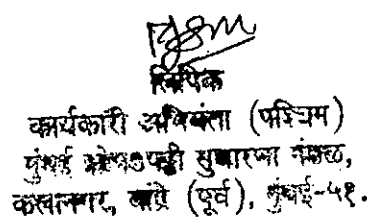 लिपिक
कार्यकारी अभियंता (पश्चिम)
मुंबई झोपडपट्टी सुधारणा मंडळ,
कलानगर, बांद्रे (पूर्व), मुंबई-५१.